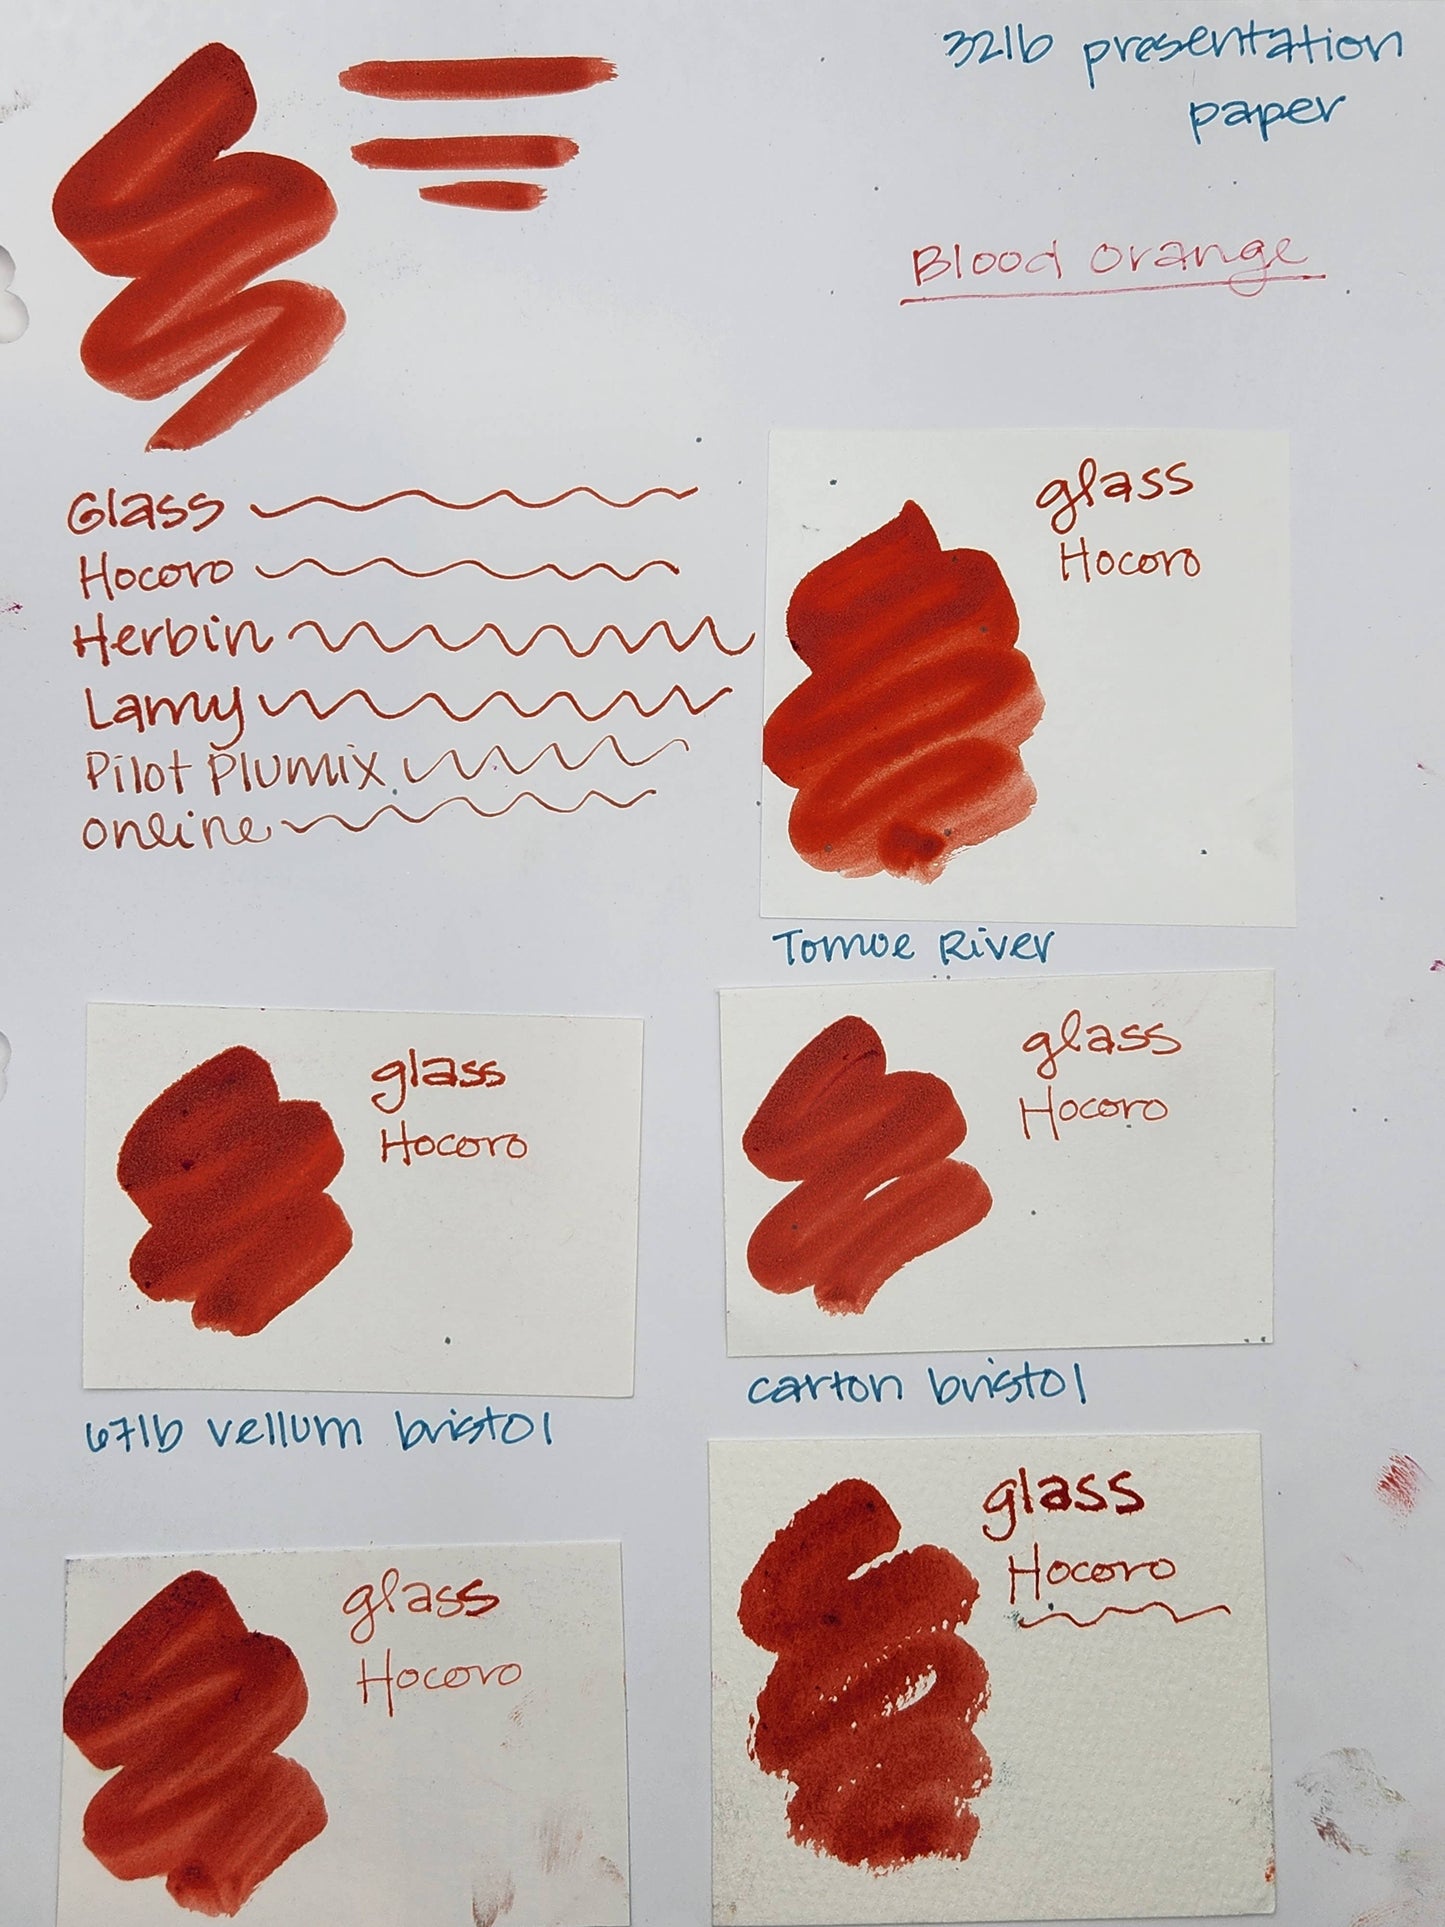 32lb presentation
paper
Blood orange
Glass
Hocoro
Herbin
Lamy
Pilot Plumix
online
glass
Hocoro
Tomoe River
glass
Hocoro
67lb vellum bristol
glass
Hocoro
carton bristol
glass
Hocoro
glass
Hocoro